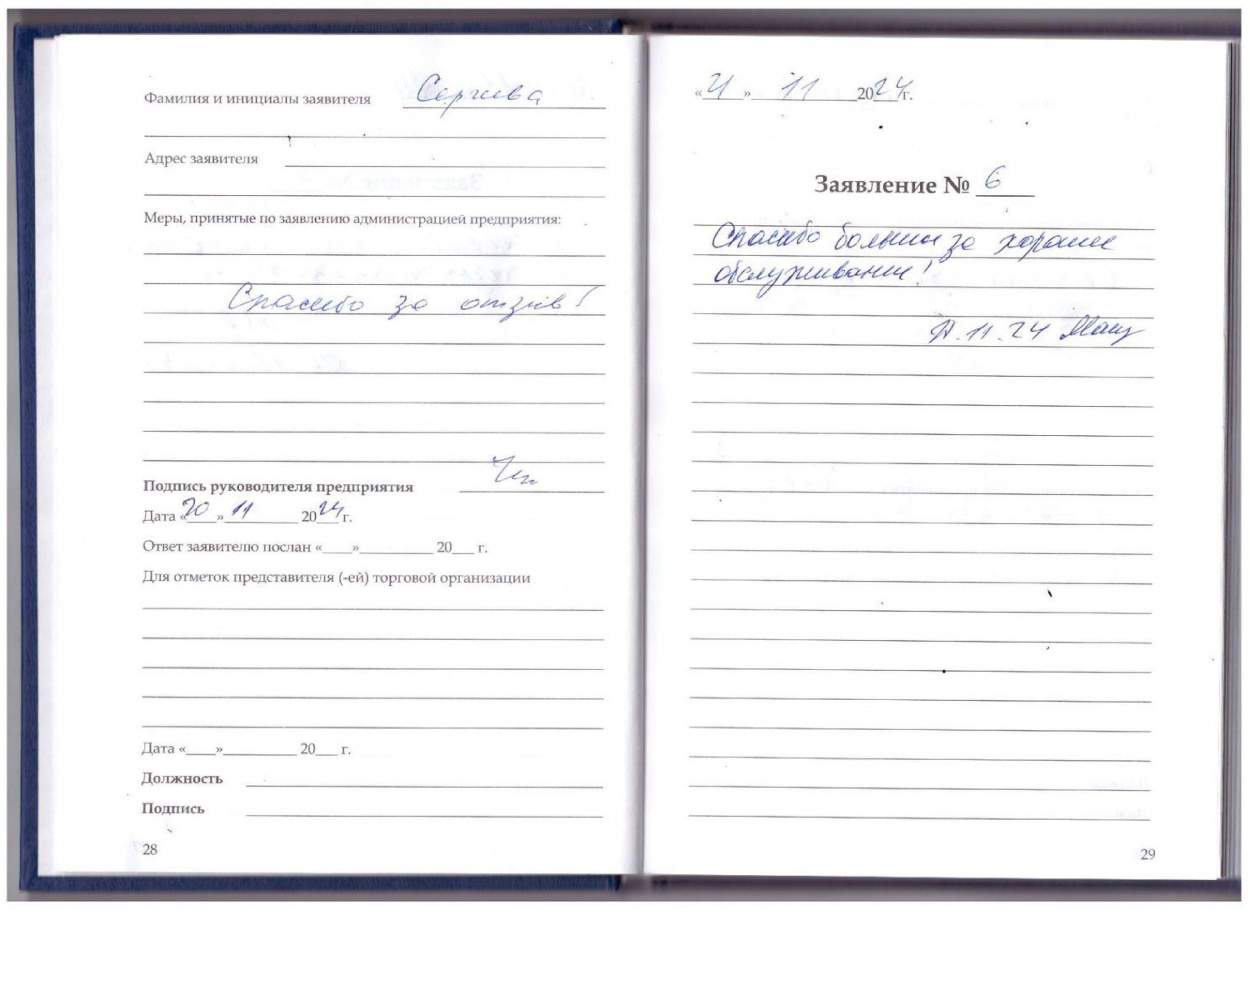 Фамилия и инициалы заявителя
Адрес заявителя
Меры, принятые по заявлению администрацией предприятия:
Спасибо за отзыв!
Подпись руководителя предприятия
Дата «20» 11 2024г.
Ответ заявителю послан «____»__________ 20___ г.
Для отметок представителя (-ей) торговой организации
Дата «____»__________ 20___ г.
Должность
Подпись
28
«21» 11 2024г.
Заявление № 6
Спасибо большое за хорошее
обслуживание!
11.24
29